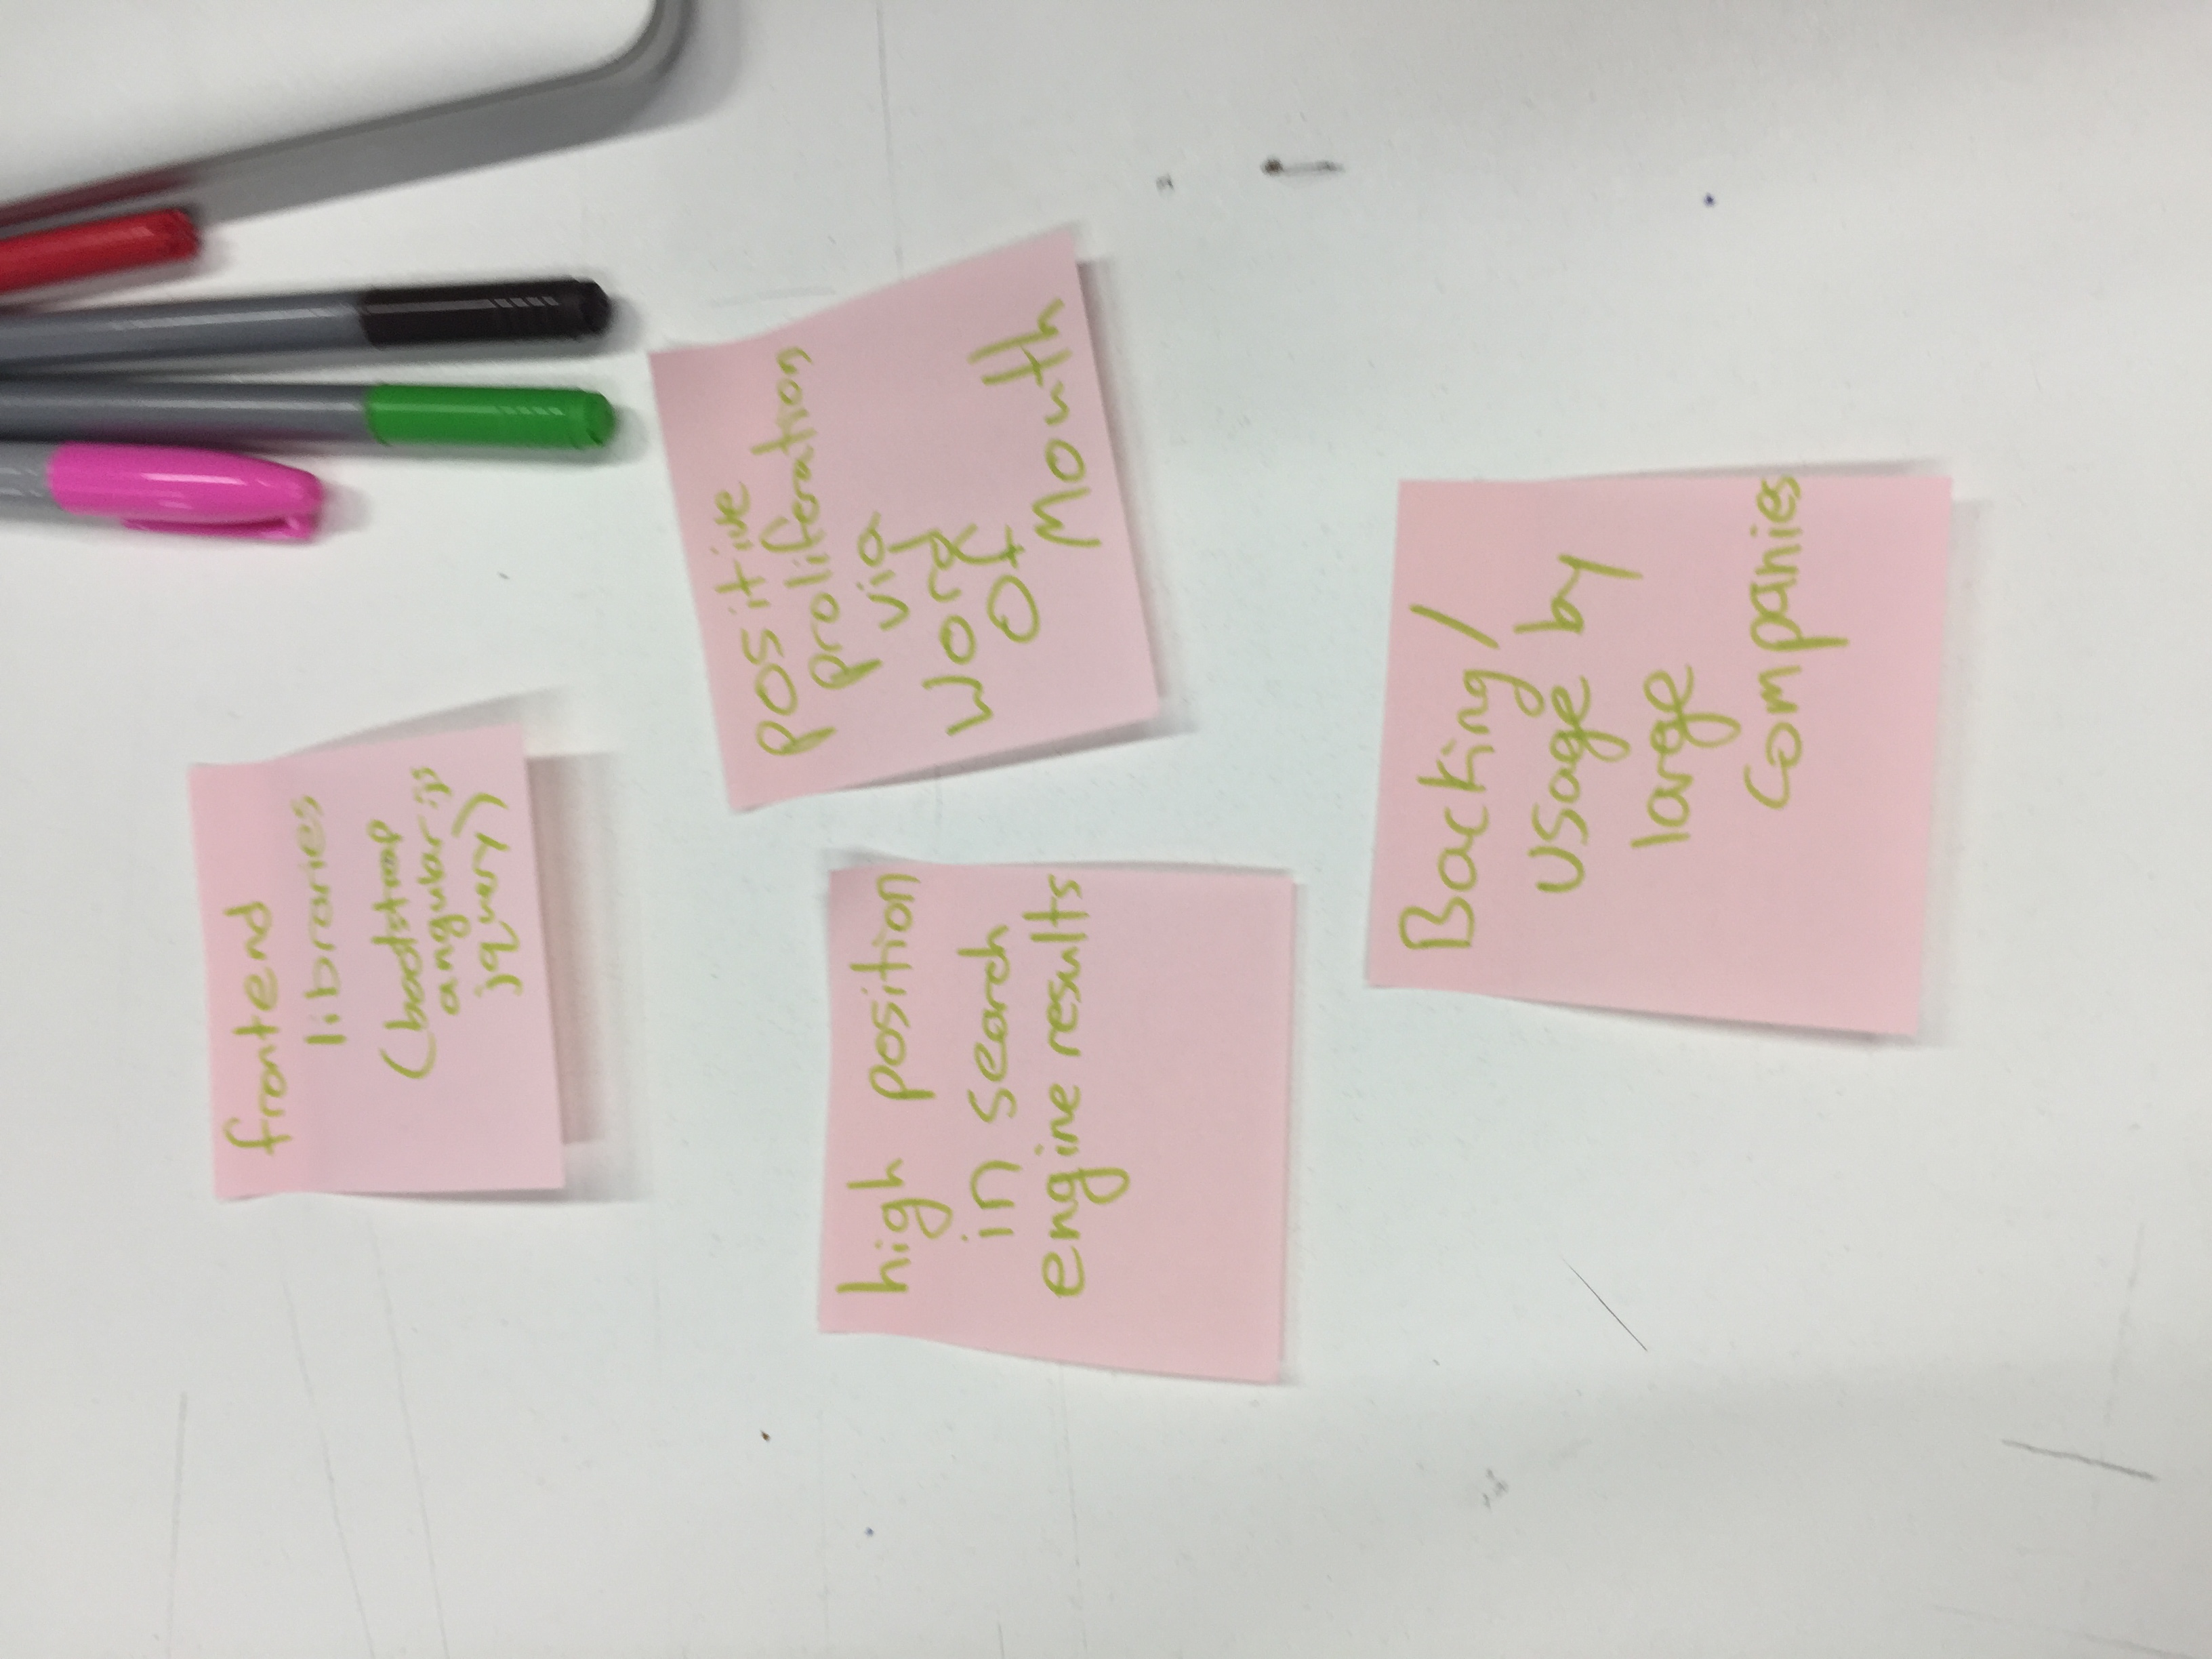 frontend
libraries
(bootstrap
angular.js
jquery)
positive
proliferation
via
Word
Of
Mouth
high position
in search
engine results
Backing/
usage by
large
companies